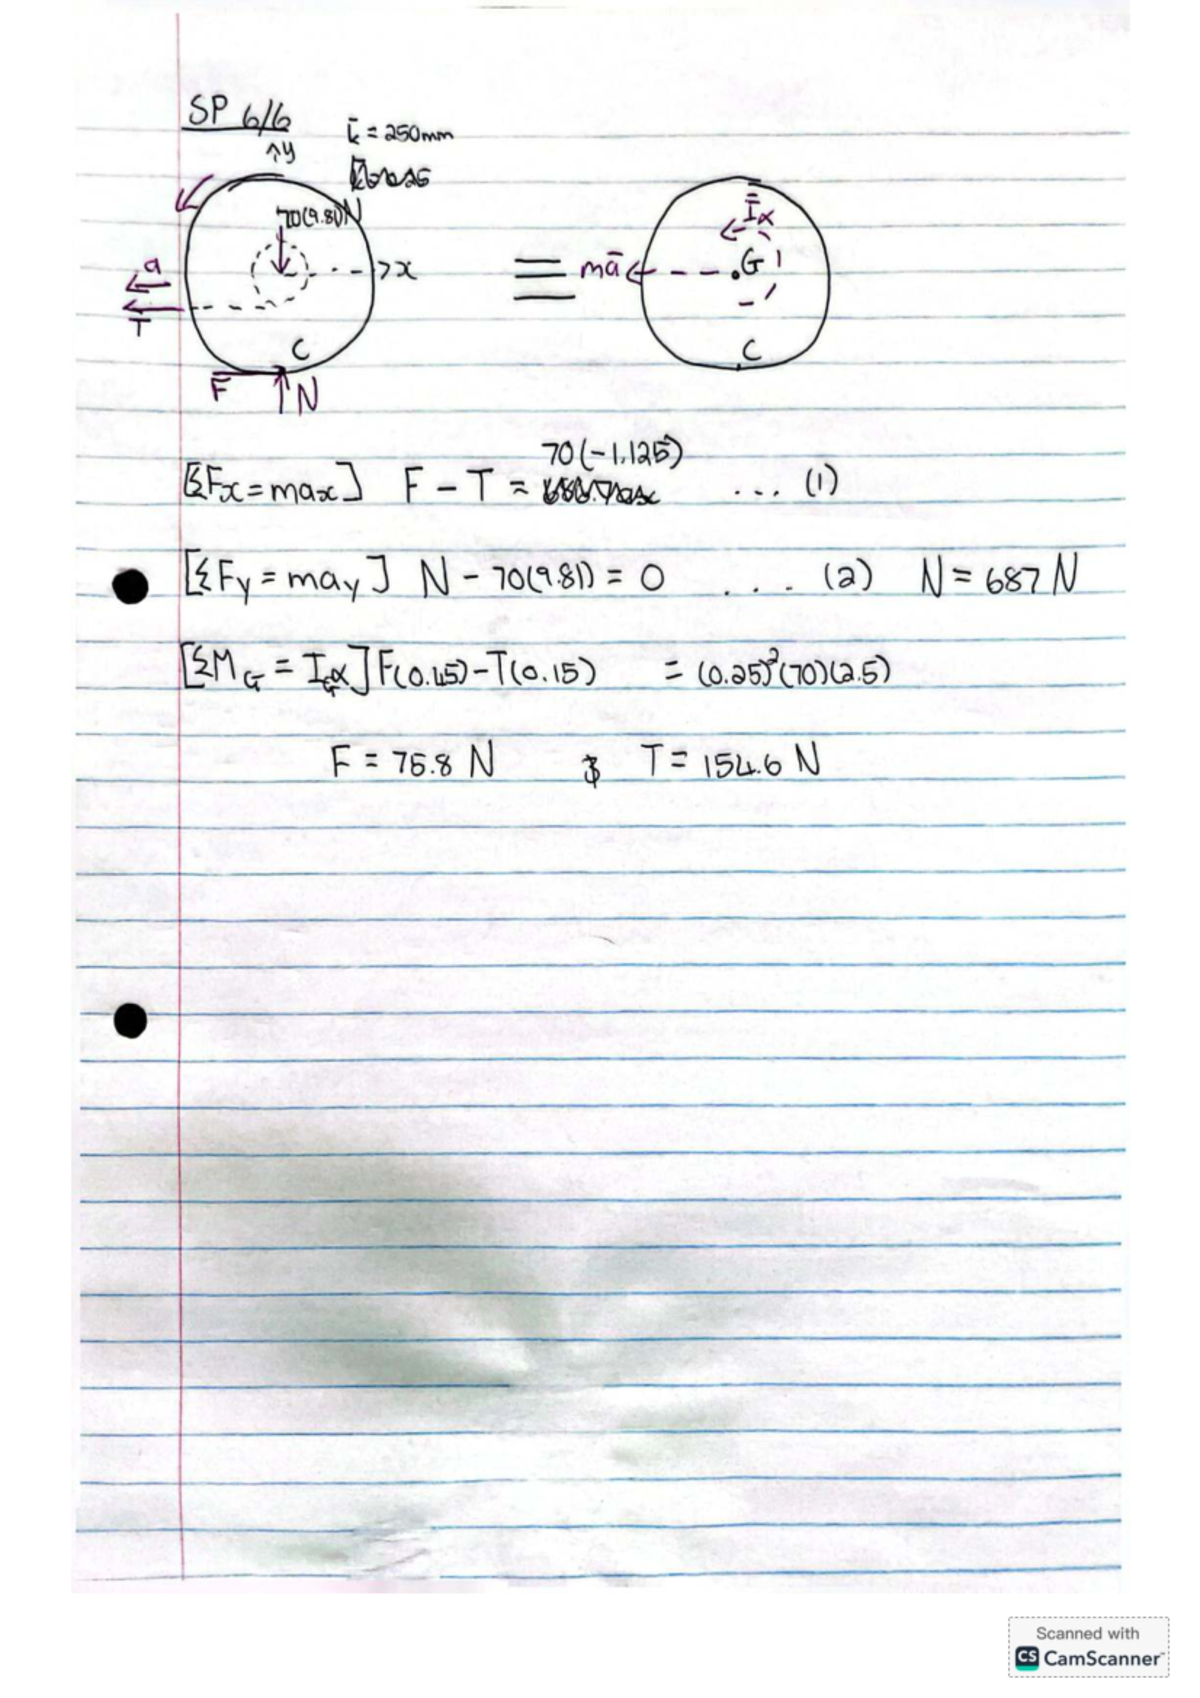 SP 6/6
k̄ = 250mm
↑y
70(9.81)N
a
→x
T
C
F
N
≡
mā
Īα
G
C
70(-1.125)
[ΣFx = max] F - T = ... (1)
[ΣFy = may] N - 70(9.81) = 0 .... (2) N = 687 N
[ΣM_G = I_Gα] F(0.45) - T(0.15) = (0.25)²(70)(2.5)
F = 75.8 N & T = 154.6 N
Scanned with
CS CamScanner™